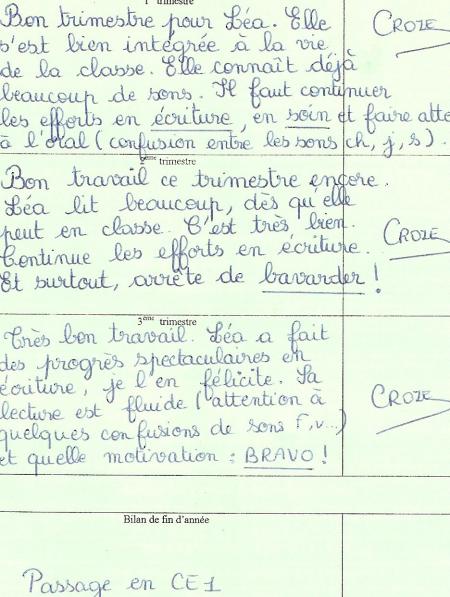 1er trimestre
Bon trimestre pour Léa. Elle
s'est bien intégrée à la vie
de la classe. Elle connaît déjà
beaucoup de sons. Il faut continuer
les efforts en écriture, en soin et faire atte
à l'oral (confusion entre les sons ch, j, s).
CROZE
2ème trimestre
Bon travail ce trimestre encore.
Léa lit beaucoup, dès qu'elle
peut en classe. C'est très bien.
Continue les efforts en écriture.
Et surtout, arrête de bavarder !
CROZE
3ème trimestre
Très bon travail. Léa a fait
des progrès spectaculaires en
écriture, je l'en félicite. Sa
lecture est fluide (attention à
quelques confusions de sons f, v...)
et quelle motivation : BRAVO !
CROZE
Bilan de fin d'année
Passage en CE1